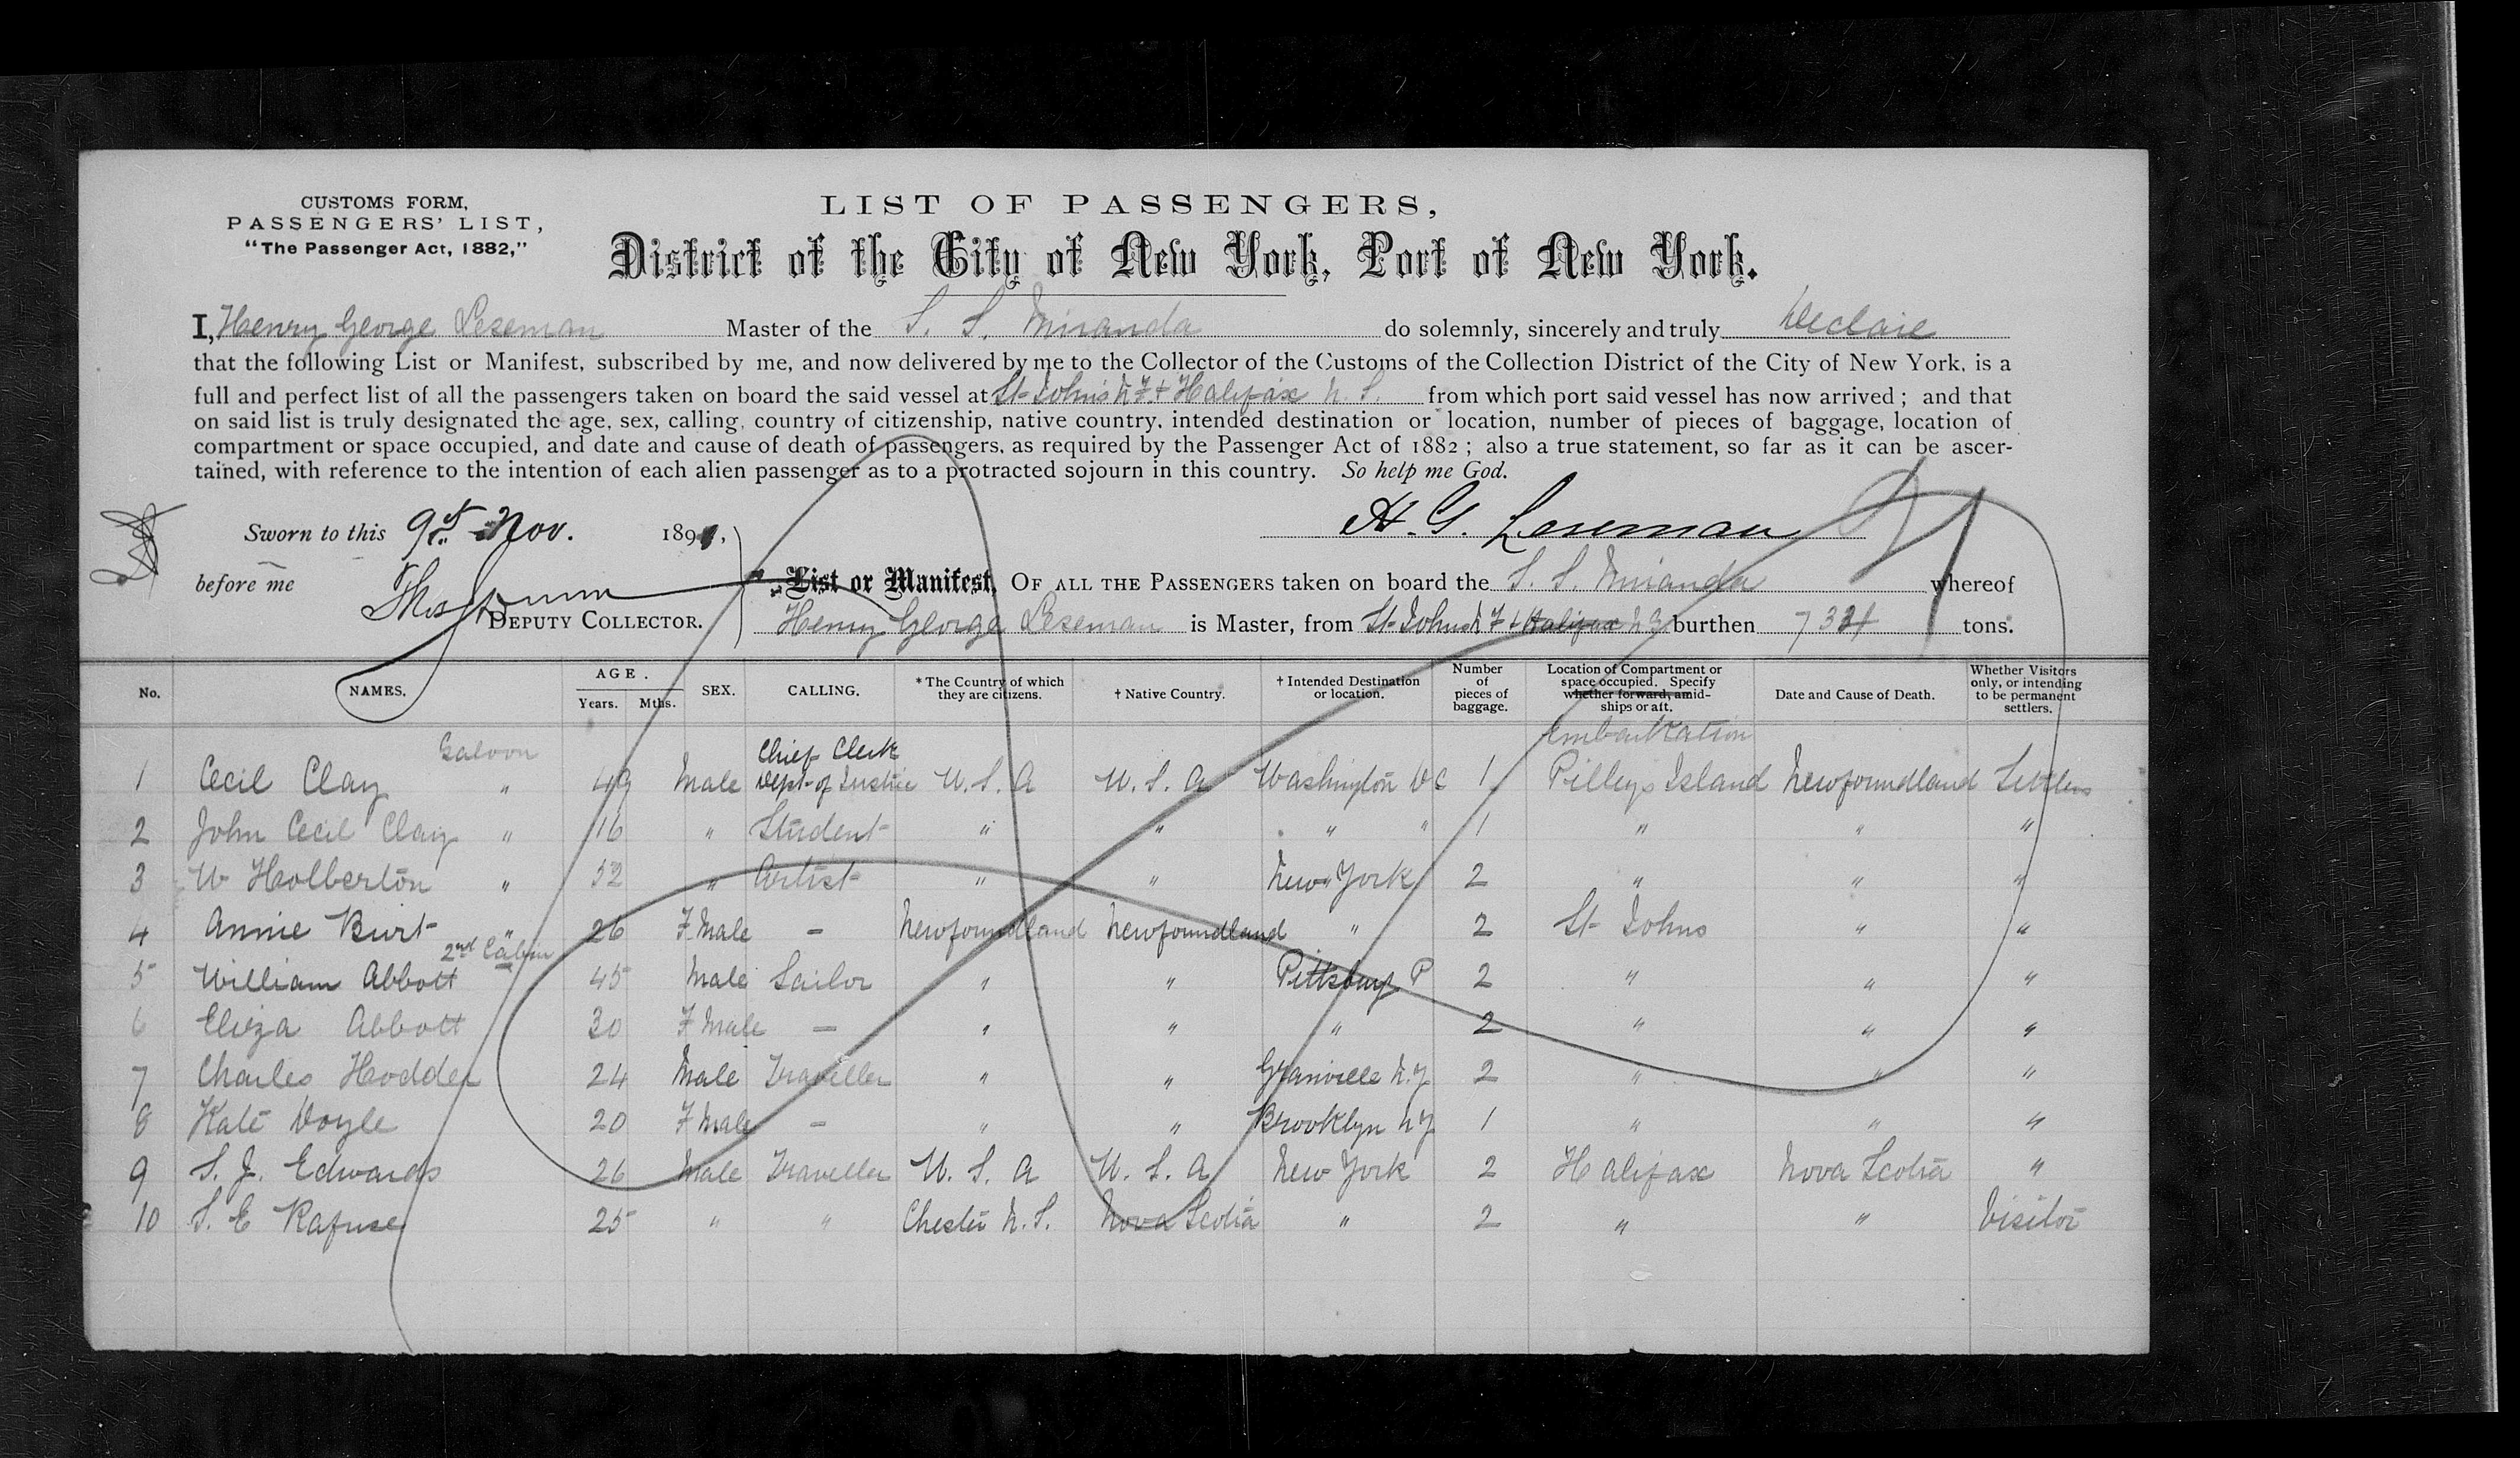 CUSTOMS FORM,
PASSENGERS' LIST,
"The Passenger Act, 1882,"
LIST OF PASSENGERS,
District of the City of New York, Port of New York.
I, Henry George Leseman Master of the S. S. Miranda do solemnly, sincerely and truly Declare
that the following List or Manifest, subscribed by me, and now delivered by me to the Collector of the Customs of the Collection District of the City of New York, is a
full and perfect list of all the passengers taken on board the said vessel at St Johns N F + Halifax N. S. from which port said vessel has now arrived; and that
on said list is truly designated the age, sex, calling, country of citizenship, native country, intended destination or location, number of pieces of baggage, location of
compartment or space occupied, and date and cause of death of passengers, as required by the Passenger Act of 1882; also a true statement, so far as it can be ascer-
tained, with reference to the intention of each alien passenger as to a protracted sojourn in this country. So help me God.
H. G. Leseman
Sworn to this 9 Nov. 1891,
before me
DEPUTY COLLECTOR.
List or Manifest, OF ALL THE PASSENGERS taken on board the S. S. Miranda whereof
Henry George Leseman is Master, from St Johns N F + Halifax N S burthen tons.
No. NAMES. AGE. Years. Mths. SEX. CALLING. * The Country of which they are citizens. † Native Country. † Intended Destination or location. Number of pieces of baggage. Location of Compartment or space occupied. Specify whether forward, amid-ships or aft. Date and Cause of Death. Whether Visitors only, or intending to be permanent settlers.
Saloon Embarkation
1 Cecil Clay " 49 Male Chief Clerk Dept of Justice U. S. A U. S. A Washington D C 1 Pilleys Island Newfoundland Settlers
2 John Cecil Clay " 16 " Student " " " " 1 " " "
3 W Holberton " 52 " Artist " " New York 2 " " "
4 Annie Burt " 26 F Male – Newfoundland Newfoundland " 2 St Johns " "
2nd Cabin
5 William Abbott 45 Male Sailor " " Pittsburg P 2 " " "
6 Eliza Abbott 30 F Male – " " " 2 " " "
7 Charles Hodder 24 Male Traveller " " Granville N. Y 2 " " "
8 Kate Doyle 20 F Male – " " Brooklyn N Y 1 " " "
9 S. J. Edwards 26 Male Traveller U. S. A U. S. A New York 2 Halifax Nova Scotia "
10 S. E Rafuse 25 " " Chester N. S. Nova Scotia " 2 " " Visitor